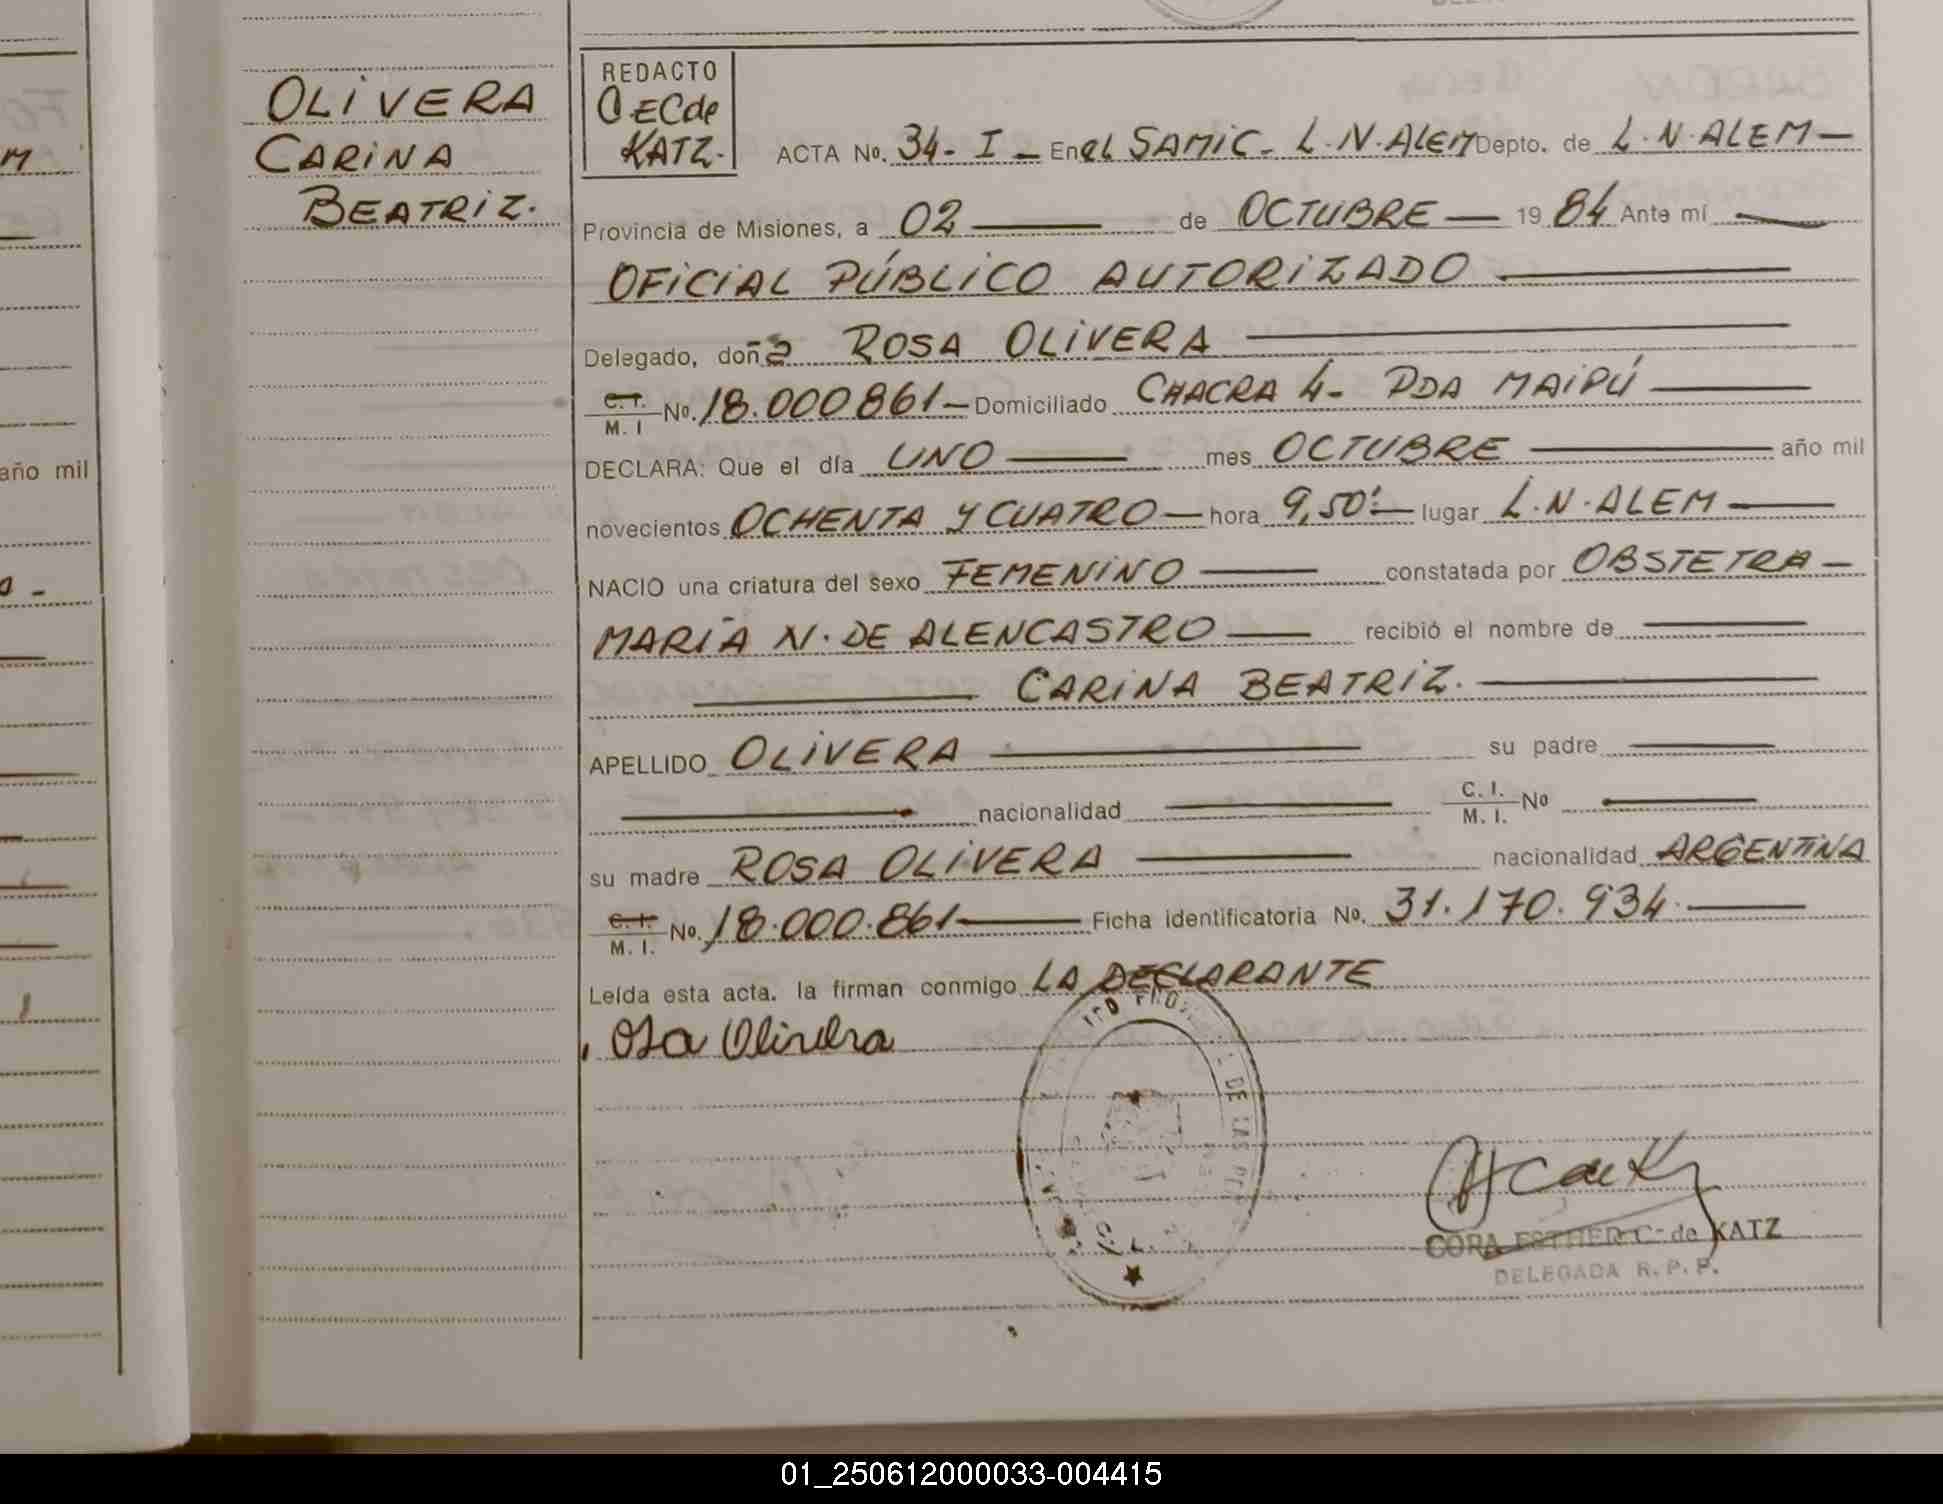 OLIVERA
CARINA
BEATRIZ.
REDACTO
CECde
KATZ.
ACTA No. 34- I - En el SAMIC- L.N.ALEM Depto. de L.N.ALEM-
Provincia de Misiones, a 02 de OCTUBRE 1984 Ante mí
OFICIAL PÚBLICO AUTORIZADO
Delegado, doña ROSA OLIVERA
C.I. M. I No. 18.000861- Domiciliado CHACRA 4- PDA MAIPÚ
DECLARA: Que el día UNO mes OCTUBRE año mil
novecientos OCHENTA Y CUATRO hora 9,50' lugar L.N.ALEM
NACIO una criatura del sexo FEMENINO constatada por OBSTETRA-
MARIA N. DE ALENCASTRO recibió el nombre de
CARINA BEATRIZ.
APELLIDO OLIVERA su padre
nacionalidad C. I. M. I. No
su madre ROSA OLIVERA nacionalidad ARGENTINA
C.I. M. I. No. 18.000.861 Ficha identificatoria No. 31.170.934
Leída esta acta. la firman conmigo LA DECLARANTE
Osa Olivera
DE LAS
CORA ESTHER C. de KATZ
DELEGADA R. P. P.
año mil
01_250612000033-004415